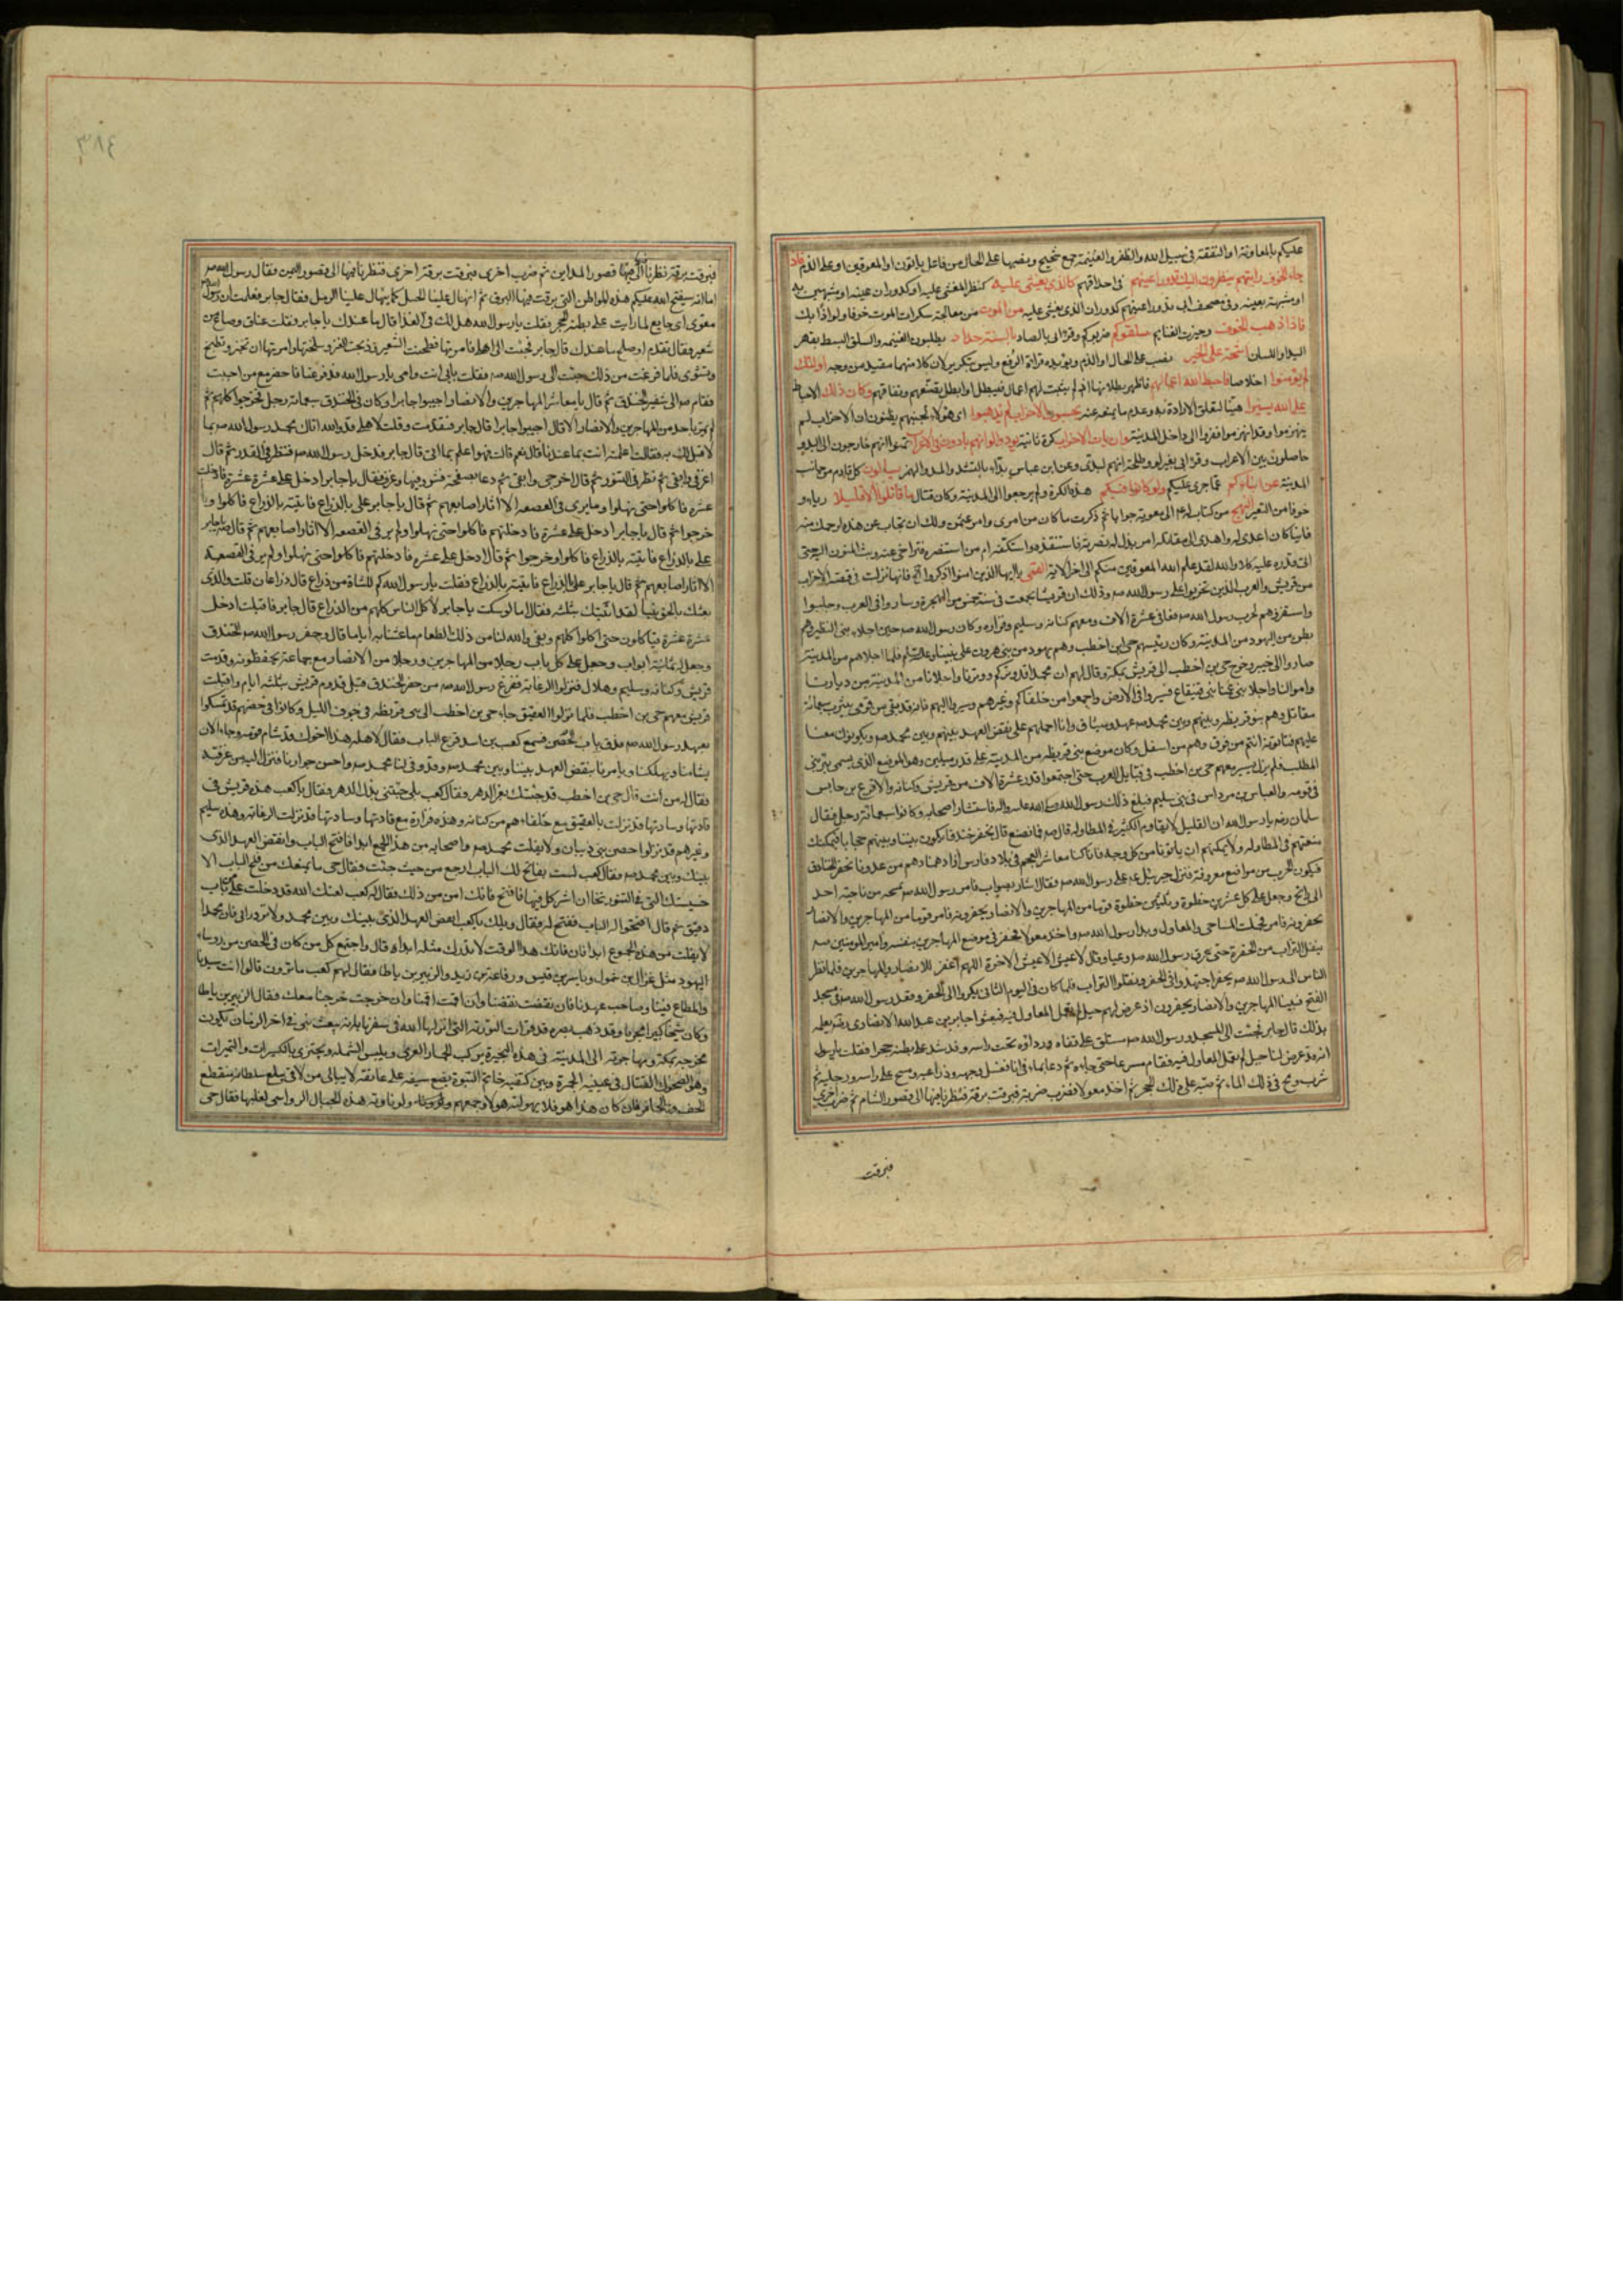 عليكم بالمعاونة او النفقة في سبيل الله والظفر والغنيمة جمع شحيح ونصبها على الحال من فاعل ياتون او المعوقين او على الذم فاذا
جاء الخوف رايتهم ينظرون اليك تدور اعينهم في احداقهم كالذي يغشى عليه كنظر المغشي عليه او كدوران عينه او مشبهين به
او مشبهة بعينه وفي مصحف ابي تدور اعينهم كدوران الذي يغشى عليه من الموت من معالجة سكرات الموت خوفا ولواذا بك
فاذا ذهب الخوف وحيزت الغنايم سلقوكم ضربوكم وقرا ابي بالصاد بالسنة حداد يطلبون الغنيمة والسلق البسط بقهر
اليد او اللسان اشحة على الخير نصب على الحال او الذم ويؤيده قراءة الرفع وليس بتكرير لان كلا منهما مقيد من وجه اولئك
لم يؤمنوا اخلاصا فاحبط الله اعمالهم فاظهر بطلانها اذ لم يثبت لهم اعمال فيبطل او ابطل تصنعهم ونفاقهم وكان ذلك الاحباط
على الله يسيرا هينا لتعلق الارادة به وعدم ما يمنعه عنه يحسبون الاحزاب لم يذهبوا اي هؤلاء لجبنهم يظنون ان الاحزاب لم
ينهزموا وقد انهزموا ففروا الى داخل المدينة وان يات الاحزاب كرة ثانية يودوا لو انهم بادون في الاعراب تمنوا انهم خارجون الى البدو
حاصلون بين الاعراب يسالون كل قادم من جانب
المدينة عن انبائكم عما جرى عليكم ولو كانوا فيكم هذه الكرة ولم يرجعوا الى المدينة وكان قتال ما قاتلوا الا قليلا رياء و
خوفا من التعيير النهج من كتاب له ع الى معوية جوابا ثم ذكرت ما كان من امري وامر عثمن ولك ان تجاب عن هذه لرحمك منه
فاينا كان اعدى له واهدى الى مقاتله امن بذل له نصرته فاستقعده واستكفه ام من استنصره فتراخى عنه وبث المنون اليه حتى
اتى قدره عليه كلا والله لقد علم الله المعوقين منكم الى اخر الاية القمي يا ايها الذين امنوا اذكروا الاية فانها نزلت في قصة الاحزاب
من قريش والعرب الذين تحزبوا على رسول الله صه وذلك ان قريشا تجمعت في سنة خمس من الهجرة وساروا في العرب وجلبوا
واستفزوهم لحرب رسول الله صه فوافوا في عشرة الاف ومعهم كنانة وسليم وفزارة وكان رسول الله صه حين اجلا بني النظير وهم
بطن من اليهود من المدينة وكان رئيسهم حي بن اخطب وهم يهود من بني هرون على نبينا وعليه السلام فلما اجلاهم من المدينة
صاروا الى خيبر وخرج حي بن اخطب الى قريش بمكة وقال لهم ان محمدا قد وتركم ووترنا واجلانا من المدينة من ديارنا
واموالنا واجلا بني عمنا بني قينقاع فسيروا في الارض واجمعوا من حلفائكم وغيرهم وسيروا اليهم فانه قد بقي من قومي بيثرب سبعمائة
مقاتل وهم بنو قريظة وبينهم وبين محمد صه عهد وميثاق وانا احملهم على نقض العهد بينهم وبين محمد صه ويكونون معنا
عليهم فتاتونه انتم من فوق وهم من اسفل وكان موضع بني قريظة من المدينة على قدر ميلين وهو الموضع الذي يسمى بئر بني
المطلب فلم يزل يسير معهم حي بن اخطب في قبايل العرب حتى اجتمعوا قدر عشرة الاف من قريش وكنانة والاقرع بن حابس
في قومه والعباس بن مرداس في بني سليم فبلغ ذلك رسول الله صلى الله عليه واله فاستشار اصحابه وكانوا سبعمائة رجل فقال
سلمان رضه يا رسول الله ان القليل لا يقاوم الكثير في المطاولة قال صه فما نصنع قال نحفر خندقا يكون بيننا وبينهم حجابا فيمكنك
منعهم في المطاولة ولا يمكنهم ان ياتونا من كل وجه فانا كنا معاشر العجم في بلاد فارس اذا دهمنا دهم من عدونا نحفر الخنادق
فيكون الحرب من مواضع معروفة فنزل جبرئيل ع على رسول الله صه فقال اشار بصواب فامر رسول الله صه بمسحه من ناحية احد
الى راتج وجعل على كل عشرين خطوة وثلثين خطوة قوما من المهاجرين والانصار يحفرونه فامر
فحملت المساحي والمعاول وبدا رسول الله صه واخذ معولا فحفر في موضع المهاجرين بنفسه وامير المؤمنين صه
ينقل التراب من الحفرة حتى عرق رسول الله صه وعيا وقال لا عيش الا عيش الاخرة اللهم اغفر للانصار وللمهاجرين فلما نظر
الناس الى رسول الله صه يحفر اجتهدوا في الحفر ونقلوا التراب فلما كان في اليوم الثاني بكروا الى الحفر وقعد رسول الله صه في مسجد
الفتح فبينا المهاجرين والانصار يحفرون اذ عرض لهم جبل لم تعمل المعاول فيه فبعثوا جابر بن عبد الله الانصاري رضه يعلمه
بذلك قال جابر فجئت الى المسجد ورسول الله صه مستلق على قفاه ورداؤه تحت راسه وقد شد على بطنه حجرا فقلت يا رسول
انه قد عرض لنا جبل لم تعمل المعاول فيه فقام مسرعا حتى جاءه ثم دعا بماء في اناء فغسل وجهه وذراعيه ومسح على راسه ورجليه ثم
شرب ومج في ذلك الماء ثم صبه على ذلك الحجر ثم اخذ معولا فضرب ضربة فبرقت برقة فنظرنا فيها الى قصور الشام ثم ضرب اخرى
فبرقت
٣٨٤
فبرقت برقة نظرنا فيها الى قصور المداين ثم ضرب اخرى فبرقت برقة اخرى فنظرنا فيها الى قصور اليمن فقال رسول الله صه
اما انه سيفتح الله عليكم هذه المواطن التي برقت فيها البرق ثم انهال علينا الجبل كما ينهال علينا الرمل فقال جابر فعلمت ان رسول الله صه
مقوى اي جايع لما رايت على بطنه الحجر فقلت يا رسول الله هل لك في الغذا قال ما عندك يا جابر فقلت عناق وصاع من
شعير فقال تقدم او صلح ما عندك قال جابر فجئت الى اهلي فامرتها فطحنت الشعير وذبحت العنز وسلختها وامرتها ان تخبز وتطبخ
وتشوى فلما فرغت من ذلك جئت الى رسول الله صه فقلت بابي انت وامي يا رسول الله قد فرغنا فاحضر مع من احببت
فقام صه الى شفير الخندق ثم قال يا معاشر المهاجرين والانصار اجيبوا جابرا وكان في الخندق سبعمائة رجل فخرجوا كلهم ثم
لم يمر باحد من المهاجرين والانصار الا قال اجيبوا جابرا قال جابر فتقدمت وقلت لاهلي قد والله اتاك محمد رسول الله صه بما
لا قبل لك به فقالت اعلمته انت بما عندنا قال نعم قالت فهو اعلم بما اتى قال جابر فدخل رسول الله صه فنظر في القدر ثم قال
اغرفي وابقي ثم نظر في التنور ثم قال اخرجي وابقي ثم دعا بصحفة فثرد فيها وغرف فقال يا جابر ادخل علي عشرة عشرة فادخلت
عشرة فاكلوا حتى نهلوا وما يرى في القصعة الا اثار اصابعهم ثم قال يا جابر علي بالذراع فاتيته بالذراع فاكلوا و
خرجوا ثم قال يا جابر ادخل علي عشرة فادخلتهم فاكلوا حتى نهلوا ولم ير في القصعة الا اثار اصابعهم ثم قال يا جابر
علي بالذراع فاتيته بالذراع فاكلوا وخرجوا ثم قال ادخل علي عشرة فادخلتهم فاكلوا حتى نهلوا ولم ير في القصعة
الا اثار اصابعهم ثم قال يا جابر علي بالذراع فاتيته بالذراع فقلت يا رسول الله كم للشاة من ذراع قال ذراعان قلت والذي
بعثك بالحق نبيا لقد اتيتك بثلثة فقال اما لو سكت يا جابر لاكل الناس كلهم من الذراع قال جابر فاقبلت ادخل
عشرة عشرة فياكلون حتى اكلوا كلهم وبقي والله لنا من ذلك الطعام ما عشنا به اياما قال وحفر رسول الله صه الخندق
وجعل له ثمانية ابواب وجعل على كل باب رجلا من المهاجرين ورجلا من الانصار مع جماعة يحفظونه وقدمت
قريش وكنانة وسليم وهلال فنزلوا الرغابة ففرغ رسول الله صه من حفر الخندق قبل قدوم قريش بثلثة ايام واقبلت
قريش معهم حي بن اخطب فلما نزلوا العقيق جاء حي بن اخطب الى بني قريظة في جوف الليل وكانوا في حصنهم قد تمسكوا
بعهد رسول الله صه فدق باب الحصن فسمع كعب بن اسد قرع الباب فقال لاهله هذا اخوك قد شام قومه وجاء الان
يشامنا ويهلكنا ويامرنا بنقض العهد بيننا وبين محمد صه وقد وفى لنا محمد صه واحسن جوارنا فنزل اليه من غرفته
فقال له من انت قال حي بن اخطب قد جئتك بعز الدهر فقال كعب بلى جئتني بذل الدهر فقال يا كعب هذه قريش في
قادتها وسادتها قد نزلت بالعقيق مع حلفاءهم من كنانة وهذه فزارة مع قادتها وسادتها قد نزلت الرغابة وهذه سليم
وغيرهم قد نزلوا حصن بني ذبيان ولا يفلت محمد صه واصحابه من هذا الجمع ابدا فافتح الباب وانقض العهد الذي
بينك وبين محمد صه فقال كعب لست بفاتح لك الباب ارجع من حيث جئت فقال حي ما يمنعك من فتح الباب الا
خسيستك التي في التنور تخاف ان اشركك فيها فافتح فانك امن من ذلك فقال له كعب لعنك الله قد دخلت علي من باب
دقيق ثم قال افتحوا له الباب ففتح له فقال ويلك يا كعب انقض العهد الذي بينك وبين محمد ولا ترد رايي فان محمدا
لا يفلت من هذه الجموع ابدا فان فاتك هذا الوقت لا تدرك مثله ابدا قال واجتمع كل من كان في الحصن من رؤساء
اليهود مثل غزال بن شمول وياسر بن قيس ورفاعة بن زيد والزبير بن باطا فقال لهم كعب ما ترون قالوا انت سيدنا
والمطاع فينا وصاحب عهدنا فان نقضت نقضنا وان اقمت اقمنا وان خرجت خرجنا معك فقال الزبير بن باطا
وكان شيخا كبيرا مجربا وقد ذهب بصره قد قرات التورية التي انزلها الله في سفرنا بانه يبعث نبي في اخر الزمان يكون
مخرجه بمكة ومهاجرته الى المدينة في هذه البحيرة يركب الحمار العري ويلبس الشملة ويجتزي بالكسيرات والتميرات
وهو الضحوك القتال في عينيه الحمرة وبين كتفيه خاتم النبوة يضع سيفه على عاتقه لا يبالي من لاقى يبلغ سلطانه منقطع
الخف والحافر فان كان هذا هو فلا يهولنه هؤلاء وجمعهم ولو ناوته هذه الجبال الرواسي لغلبها فقال حي